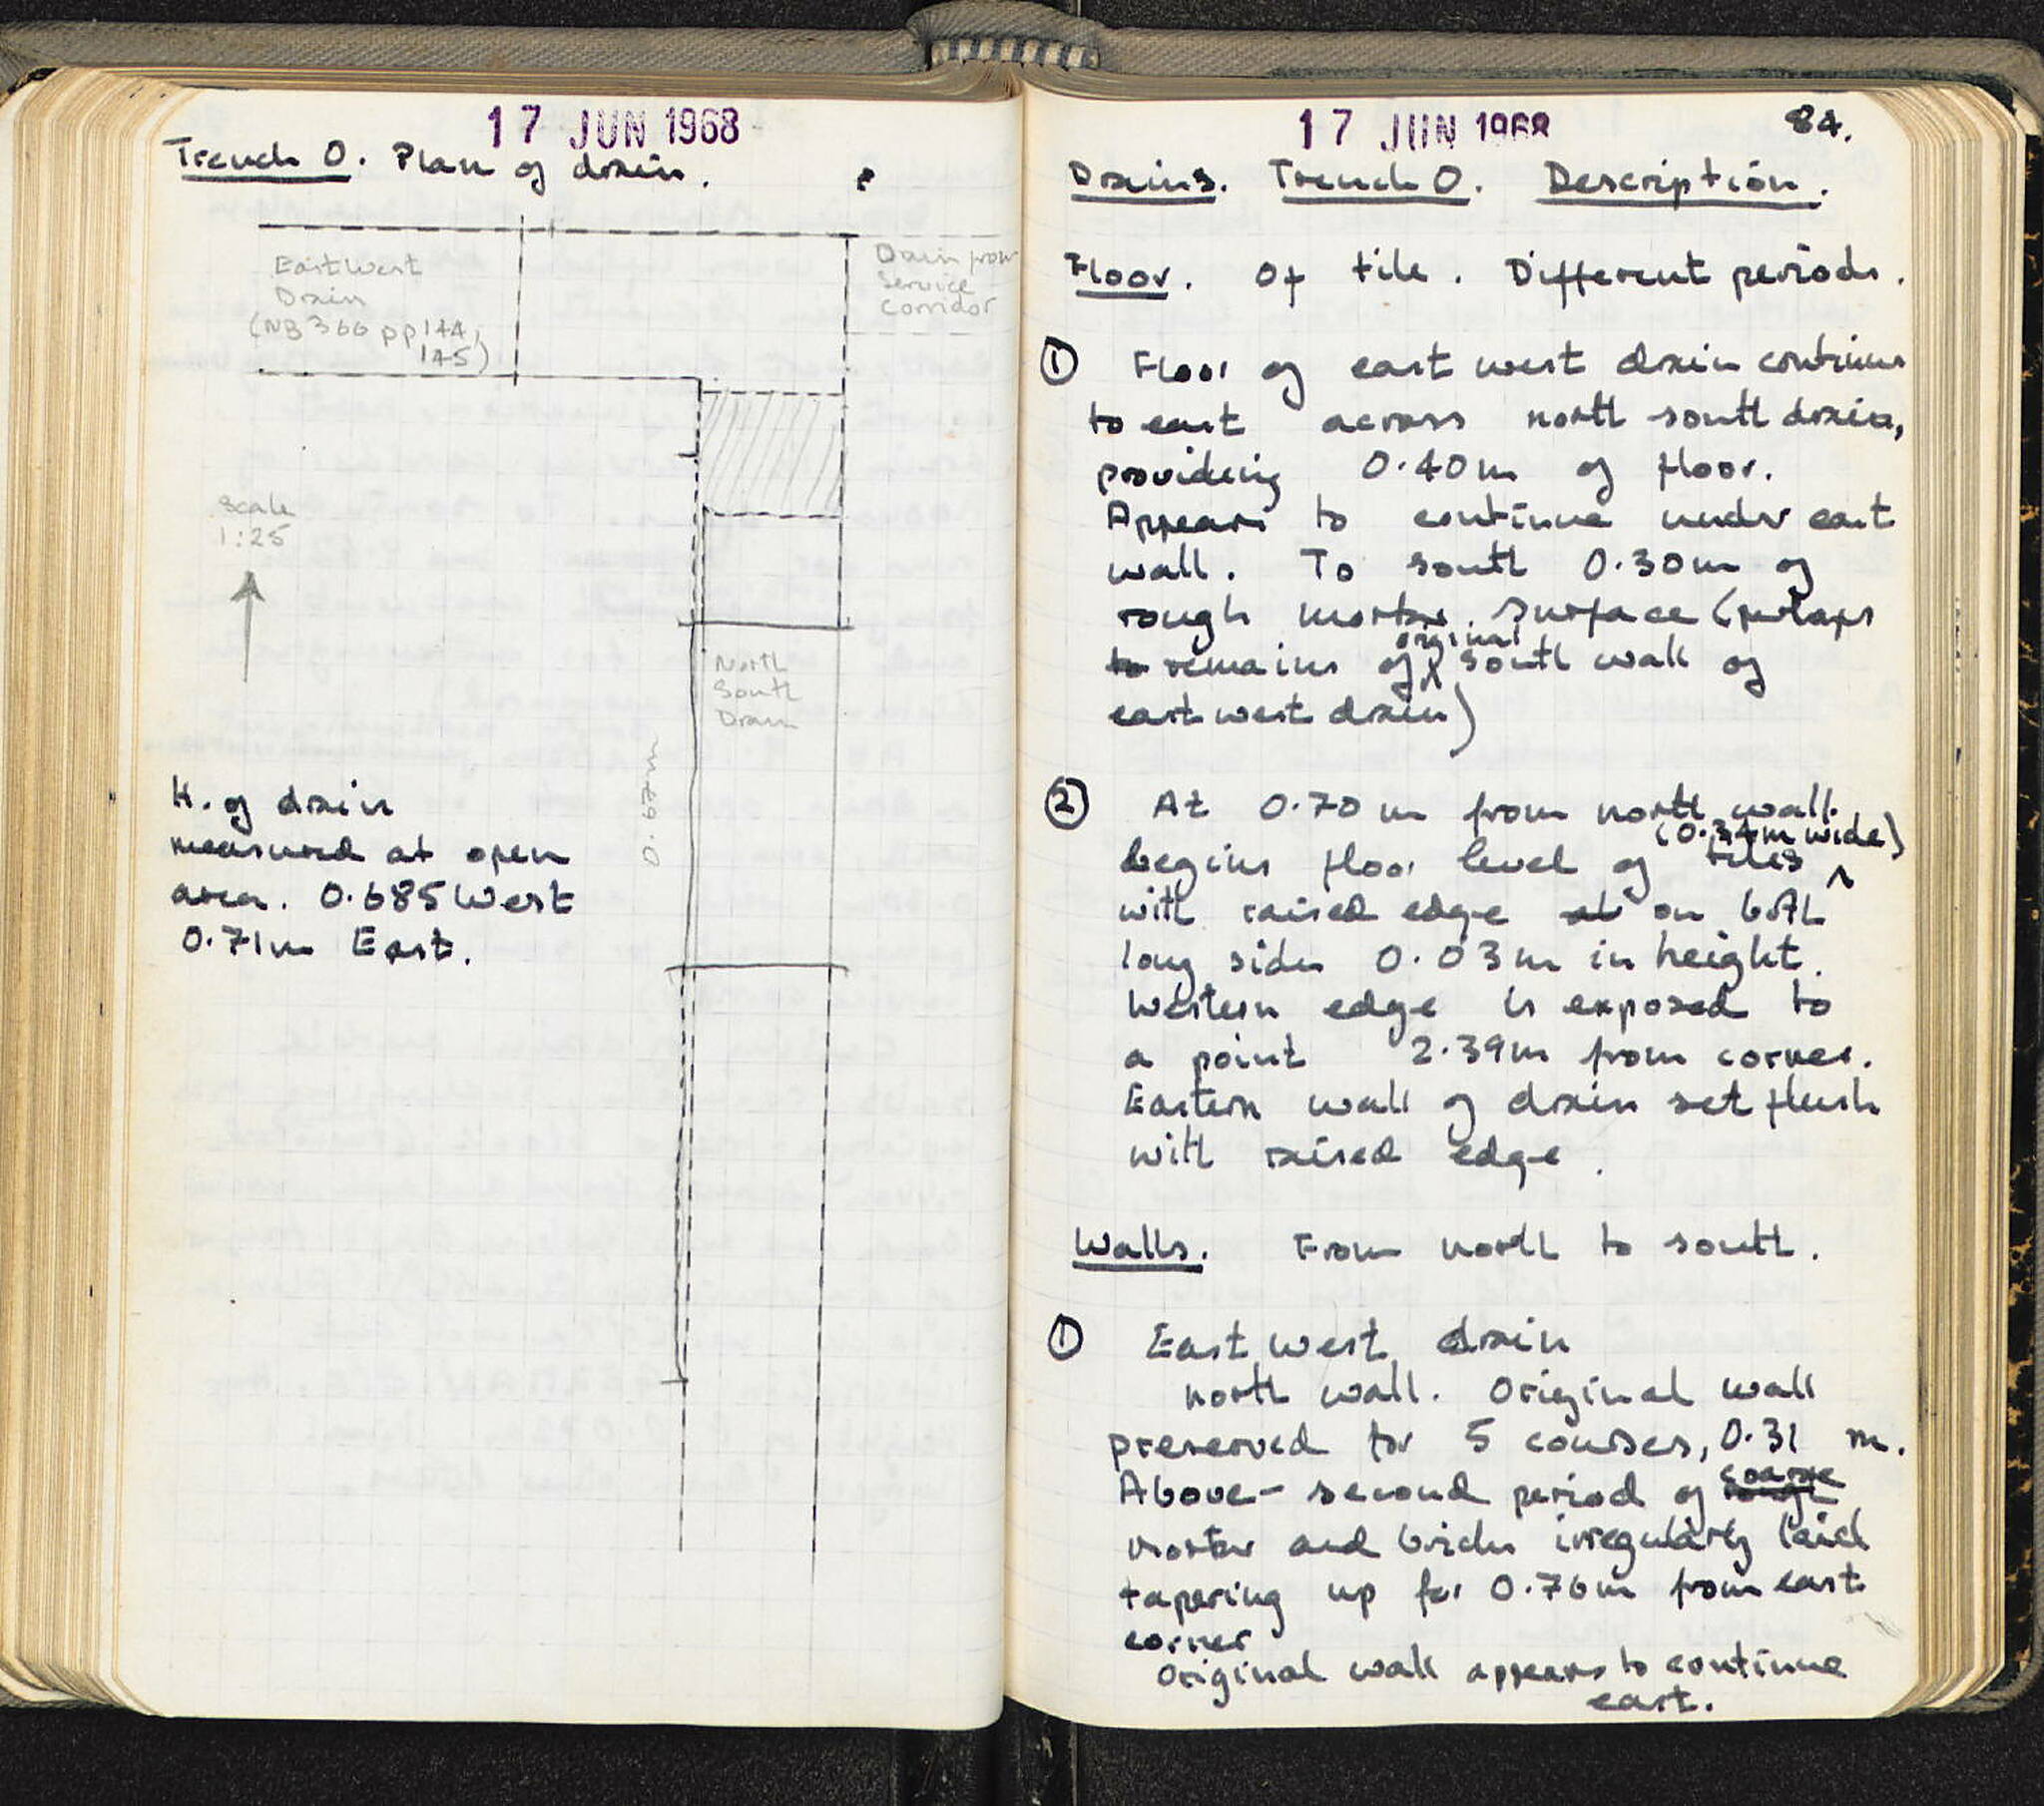 17 JUN 1968
Trench O. Plan of drain.
East West
Drain
(NB 366 pp 144,
145)
Drain from
Service
Corridor
Scale
1:25
North
South
Drain
0.62m
H. of drain
measured at open
area. 0.685 West
0.71m East.
17 JUN 1968
84.
Drains. Trench O. Description.
Floor. Of tile. Different periods.
① Floor of east west drain continues
to east across north south drain,
providing 0.40m of floor.
Appears to continue under east
wall. To south 0.30m of
rough mortar surface (perhaps
to remains of original south wall of
east west drain)
② At 0.70m from north wall
begins floor level of tiles (0.34m wide)
with raised edge at on both
long sides 0.03m in height.
Western edge is exposed to
a point 2.39m from corner.
Eastern wall of drain set flush
with raised edge.
Walls. From north to south.
① East west drain
north wall. Original wall
preserved for 5 courses, 0.31 m.
Above - second period of rough coarse
mortar and bricks irregularly laid
tapering up for 0.76m from east
corner
Original wall appears to continue
east.